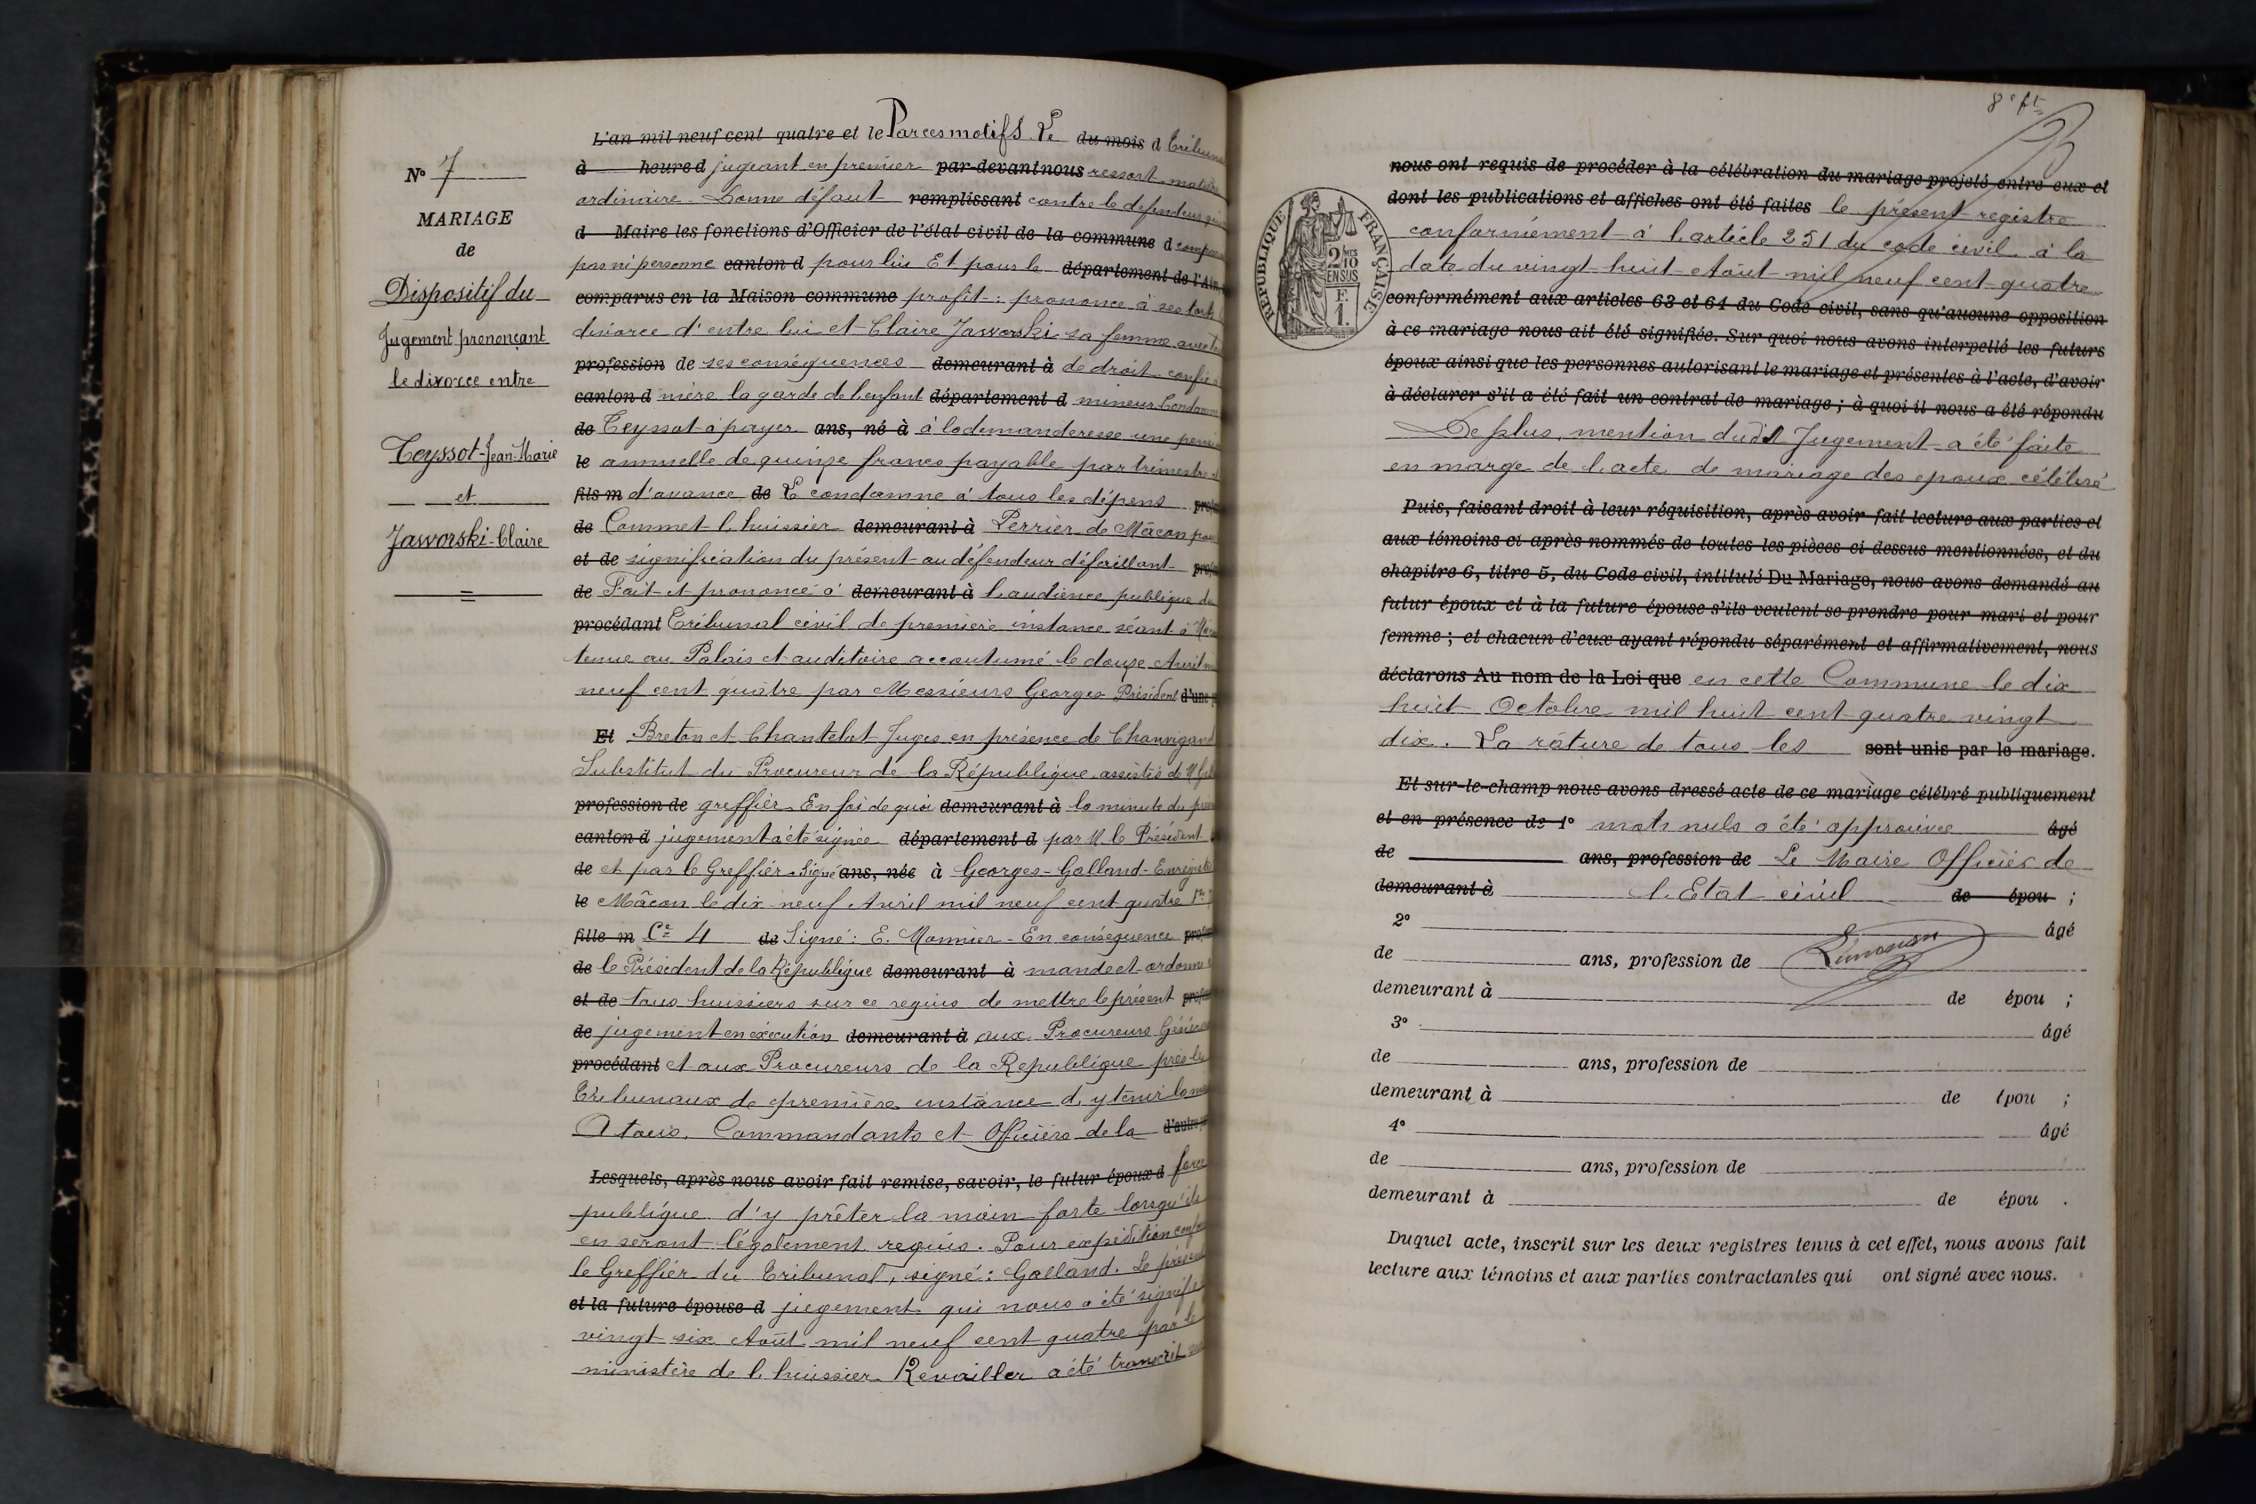 N° 7
MARIAGE
de
Dispositif du
Jugement prononçant
le divorce entre
Teyssot-Jean-Marie
et
Jaworski-Claire
L'an mil neuf cent quatre et le Par ces motifs Le du mois d
à heure d jugeant en premier par-devant nous ressort
ordinaire. Donne défaut remplissant contre le défendeur
d Maire les fonctions d'Officier de l'état civil de la commune d
pas ni personne canton d pour lui Et pour le département de l'Ain
comparus en la Maison commune profit : prononce à ses torts
divorce d'entre lui et Claire Jaworski sa femme avec
profession de ses conséquences demeurant à de droit confie
canton d mère la garde de l'enfant département d mineur
de Teyssot à payer ans, né à à la demanderesse une
le annuelle de quinze francs payable par trimestre
fils m d'avance de Le condamne à tous les dépens
de Commet l'huissier demeurant à Perrier de Mâcon
et de signification du présent au défendeur défaillant
de Fait et prononcé à demeurant à l'audience publique du
procédant Tribunal civil de première instance séant à
tenue au Palais et auditoire accoutumé le douze Avril
neuf cent quatre par Messieurs Georges Président d'une
Et Breton et Chantelot Juges en présence de
Substitut du Procureur de la République assistés de M
profession de greffier En foi de quoi demeurant à la minute du
canton d jugement a été signée département d par M. le Président
de et par le Greffier. Signé ans, née à Georges-Galland-
le Mâcon le dix neuf Avril mil neuf cent quatre
fille m Ce 4 de Signé : E. Monnier - En conséquence
de le Président de la République demeurant à mande et ordonne
et de tous huissiers sur ce requis de mettre le présent
de jugement en exécution demeurant à aux Procureurs
procédant et aux Procureurs de la République près les
Tribunaux de première instance d'y tenir la
A tous, Commandants et Officiers de la
Lesquels, après nous avoir fait remise, savoir, le futur époux d force
publique d'y prêter la main forte lorsqu'ils
en seront légalement requis. Pour expédition
le Greffier du Tribunal, signé : Galland. Le
et la future épouse d jugement qui nous a été signifié
vingt six Août mil neuf cent quatre par le
ministère de l'huissier Revailler a été transcrit
8e ft
RÉPUBLIQUE FRANÇAISE
2/10
EN SUS
nous ont requis de procéder à la célébration du mariage projeté entre eux et
dont les publications et affiches ont été faites le présent registre
conformément à l'article 251 du code civil à la
date du vingt-huit-Août mil neuf cent quatre
conformément aux articles 63 et 64 du Code civil, sans qu'aucune opposition
à ce mariage nous ait été signifiée. Sur quoi nous avons interpellé les futurs
époux ainsi que les personnes autorisant le mariage et présentes à l'acte, d'avoir
à déclarer s'il a été fait un contrat de mariage ; à quoi il nous a été répondu
De plus, mention dudit Jugement a été faite
en marge de l'acte de mariage des époux célébré
Puis, faisant droit à leur réquisition, après avoir fait lecture aux parties et
aux témoins ci après nommés de toutes les pièces ci dessus mentionnées, et du
chapitre 6, titre 5, du Code civil, intitulé Du Mariage, nous avons demandé au
futur époux et à la future épouse s'ils veulent se prendre pour mari et pour
femme ; et chacun d'eux ayant répondu séparément et affirmativement, nous
déclarons Au nom de la Loi que en cette Commune le dix
huit Octobre mil huit cent quatre vingt
dix. La rature de tous les sont unis par le mariage.
Et sur-le-champ nous avons dressé acte de ce mariage célébré publiquement
et en présence de 1° mots nuls a été approuvée âgé
de ans, profession de Le Maire Officier de
demeurant à l'Etat civil de épou ;
2° âgé
de ans, profession de
demeurant à de épou ;
3° âgé
de ans, profession de
demeurant à de épou ;
4° âgé
de ans, profession de
demeurant à de épou .
Duquel acte, inscrit sur les deux registres tenus à cet effet, nous avons fait
lecture aux témoins et aux parties contractantes qui ont signé avec nous.